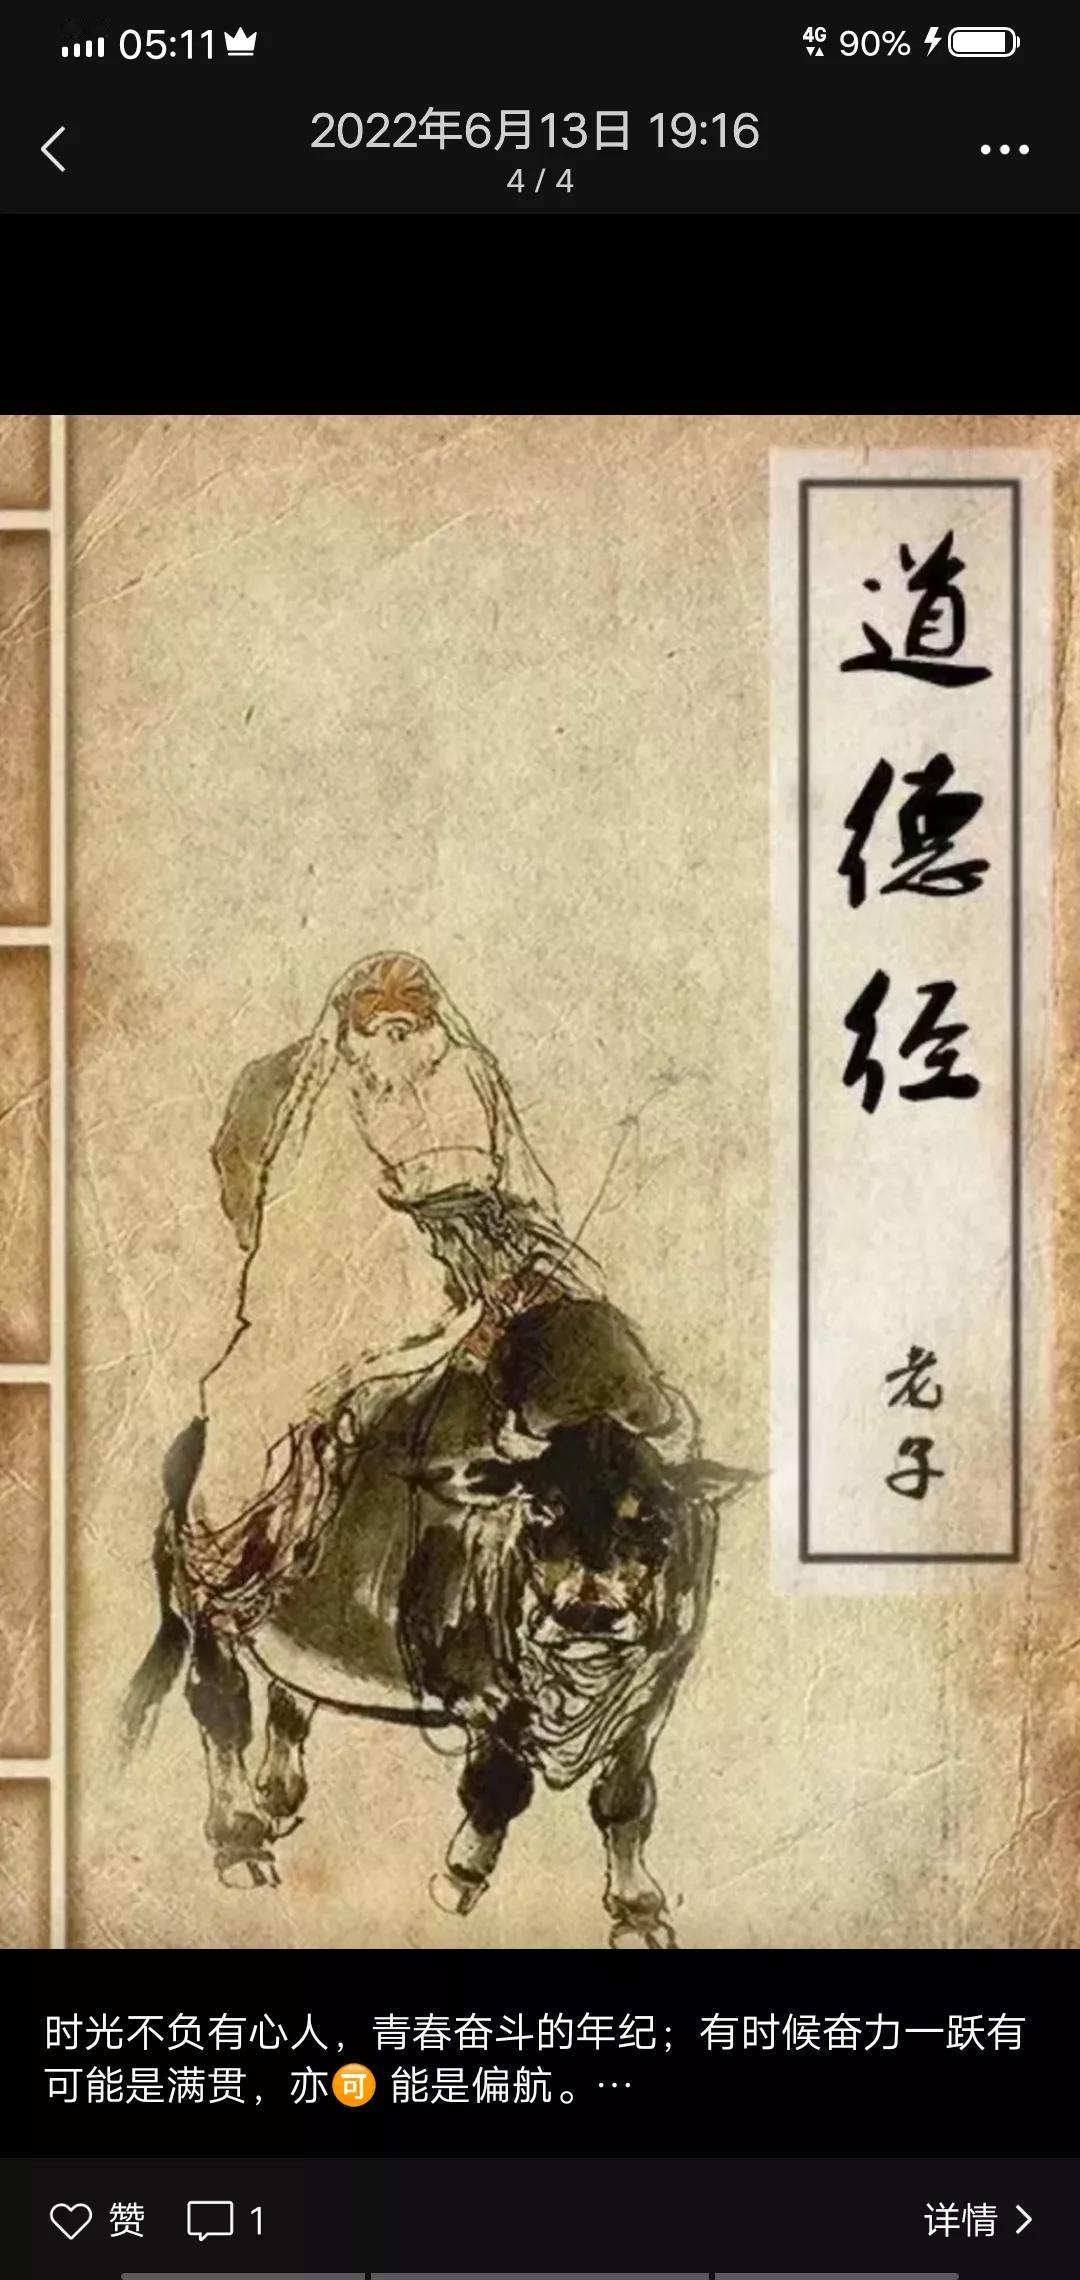 05:11
4G 90%
2022年6月13日 19:16
4 / 4
道德经
老子
时光不负有心人，青春奋斗的年纪；有时候奋力一跃有
可能是满贯，亦🉑能是偏航。…
赞 1 详情